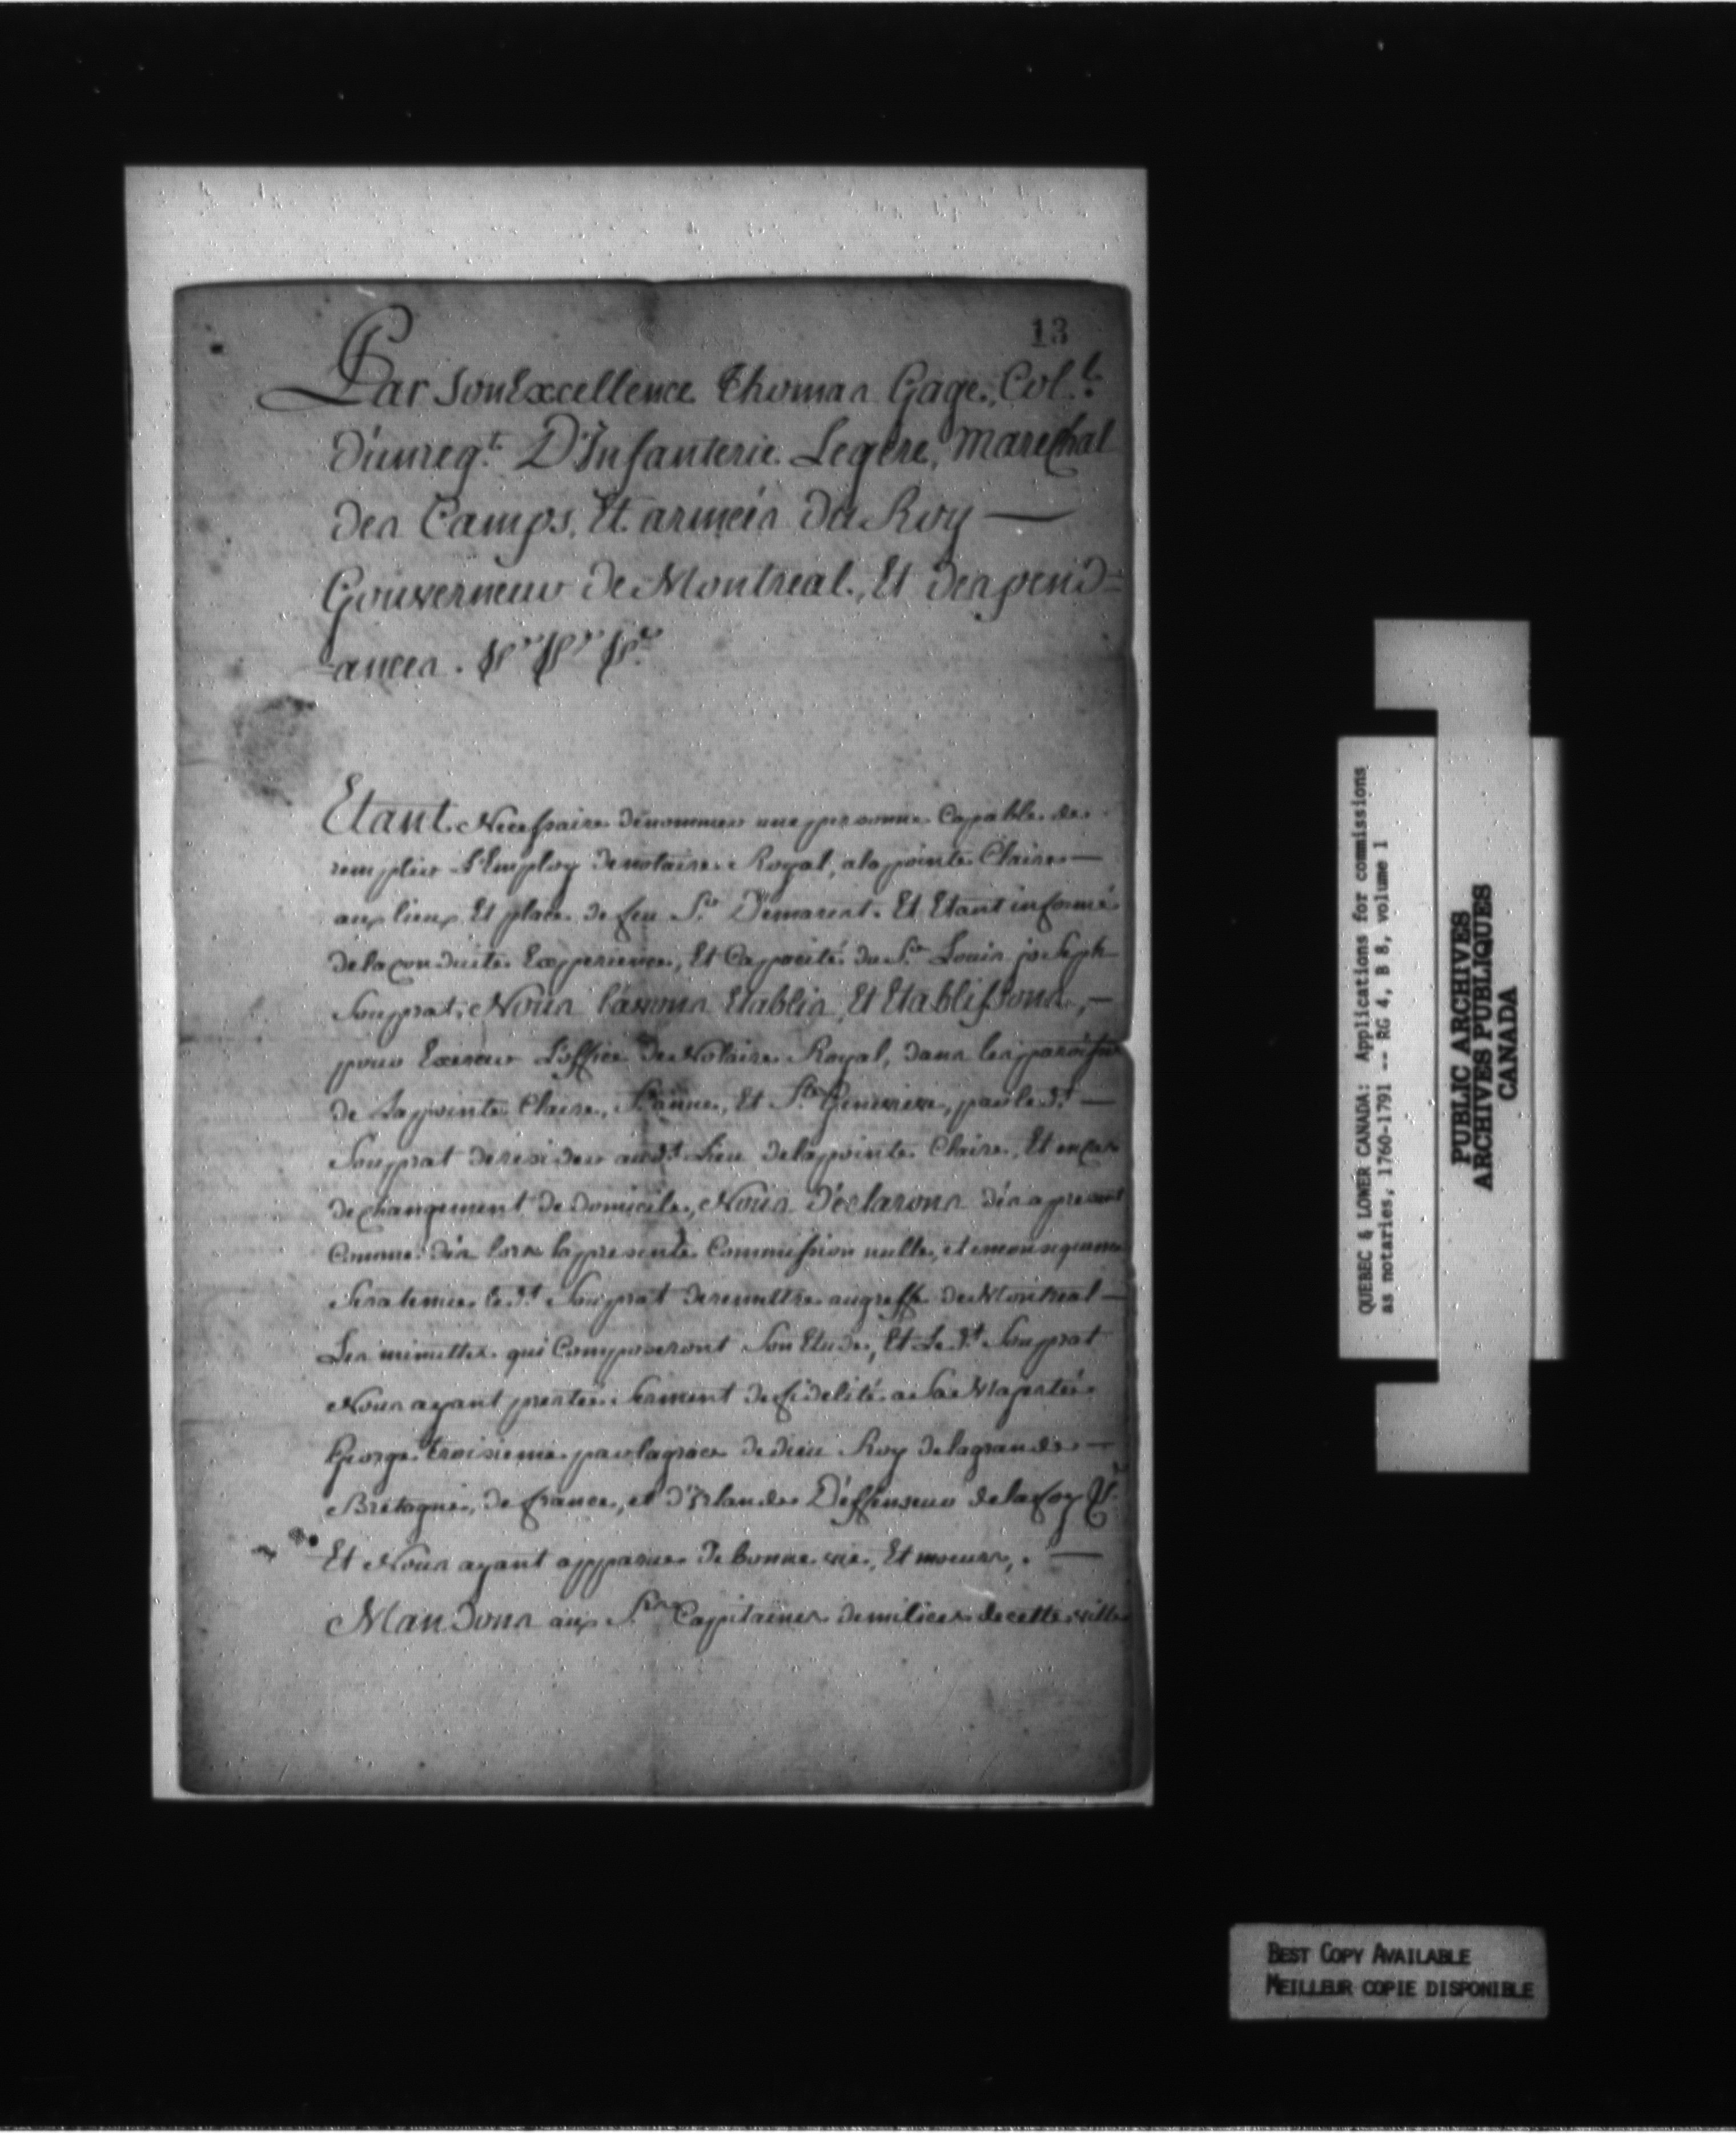 13
Par Son Excellence Thomas Gage, Col.l
d'un reg.t D'Infanterie Legere, Marechal
des Camps, Et armeés du Roy —
Gouverneur de Montreal, Et despend=
-ances. &c &c &c
Etant Necessaire de nommer une personne Capable de
remplir L'Employ de notaire Royal, a la pointe Claire —
aux lieux Et place de feu S.r Demarest. Et Etant informé
de la conduite Experience, Et Capacité du S.r Louis joseph
Souprat, Nous l'avons Etablis, Et Etablissons, —
pour Exercer L'office de Notaire Royal, dans les paroisses
de La pointe Claire, S.te anne, Et S.te Genevieve, par le d.t —
Souprat de resider aud.t Lieu de la pointe Claire, Et en cas
de changement de domicile, Nous Déclarons dés a present
Comme dés lors la presente Commission nulle, et en consequence
Sera tenue le d.t Souprat de remettre au greffe de Montreal —
Les minuttes qui Composeront Son Etude, Et Le d.t Souprat
Nous ayant prestée Serment de fidelité a Sa Majestée
George troisieme par la grace de dieu Roy de la grande —
Bretagne, de france, et d'Irlande Déffenseur de la foy &c
Et Nous ayant apparue de bonne vie, Et moeurs, . —
Mandons aux S.rs Capitaines de milices de cette ville
QUEBEC & LOWER CANADA: Applications for commissions
as notaries, 1760-1791 --- RG 4, B 8, volume 1
PUBLIC ARCHIVES
ARCHIVES PUBLIQUES
CANADA
BEST COPY AVAILABLE
MEILLEUR COPIE DISPONIBLE